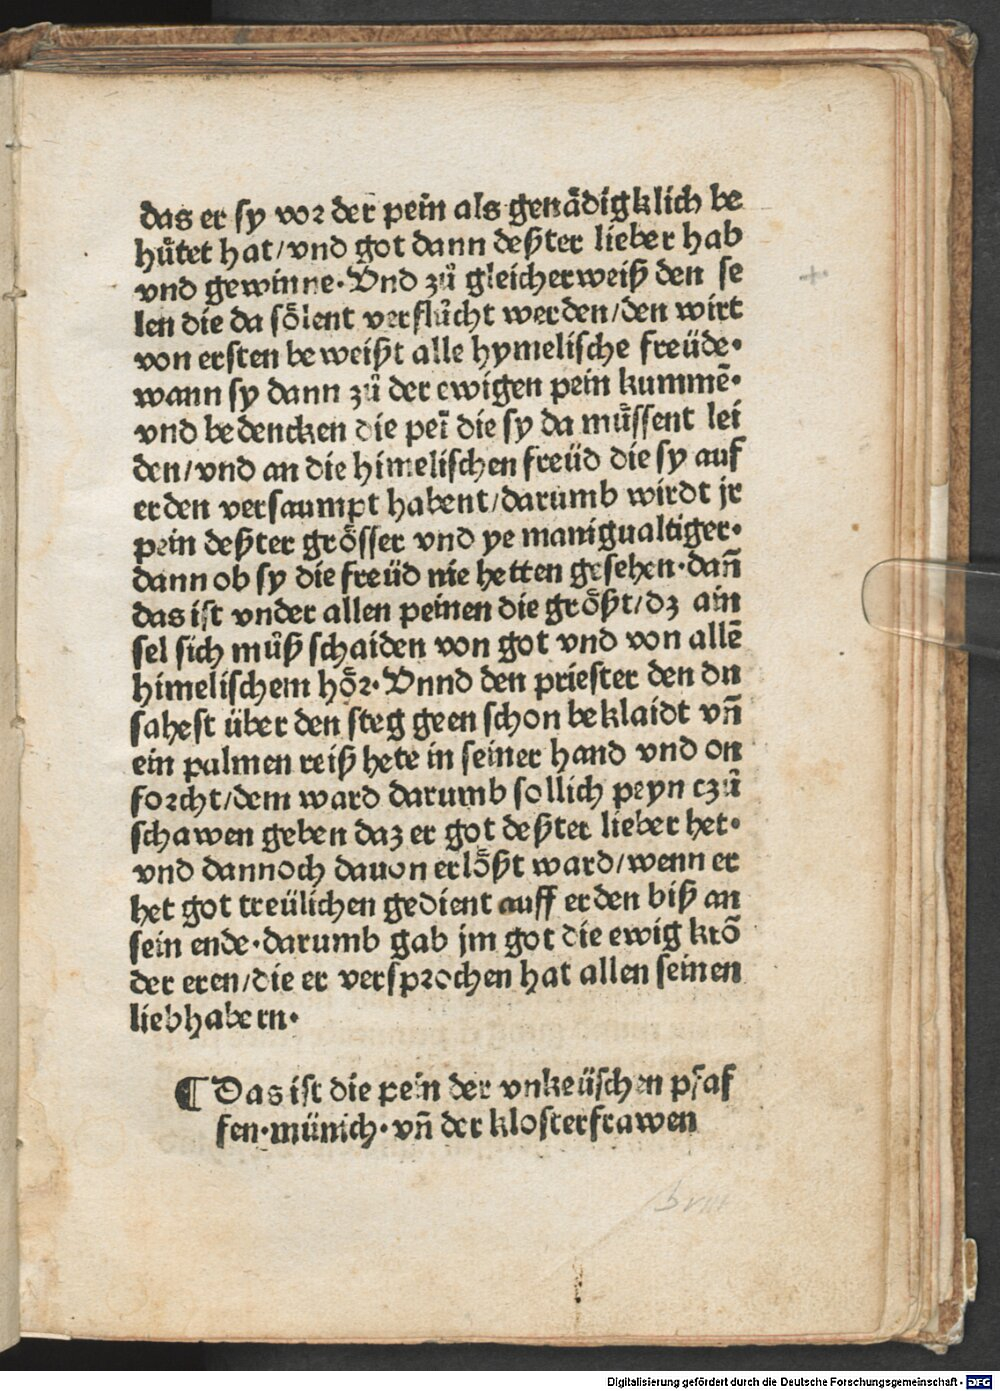 das er sy vor der pein als genädigklich be
hütet hat/vnd got dann deßter lieber hab
vnd gewinne·Vnd zů gleicherweiß den se
len die da sölent verflůcht werden/den wirt
von ersten beweißt alle hymelische freüde·
wann sy dann zů der ewigen pein kummē·
vnd bedencken die peī die sy da müssent lei
den/vnd an die himelischen freüd die sy auf
erden versaumpt habent/darumb wirdt jr
pein deßter grösser vnd ye manigualtiger·
dann ob sy die freüd nie hetten gesehen·dañ
das ist vnder allen peinen die größt/dz ain
sel sich můß schaiden von got vnd von allē
himelischem hör·Vnnd den priester den du
sahest über den steg geen schon beklaidt vñ
ein palmen reiß hete in seiner hand vnd on
forcht/dem ward darumb sollich peyn czů
schawen geben daz er got deßter lieber het·
vnd dannoch dauon erlößt ward/wenn er
het got treülichen gedient auff erden biß an
sein ende·darumb gab jm got die ewig krō
der eren/die er versprochen hat allen seinen
liebhabern·
¶ Das ist die pein der vnkeüschen pfaf
fen·münich·vñ der klosterfrawen
Digitalisierung gefördert durch die Deutsche Forschungsgemeinschaft - DFG